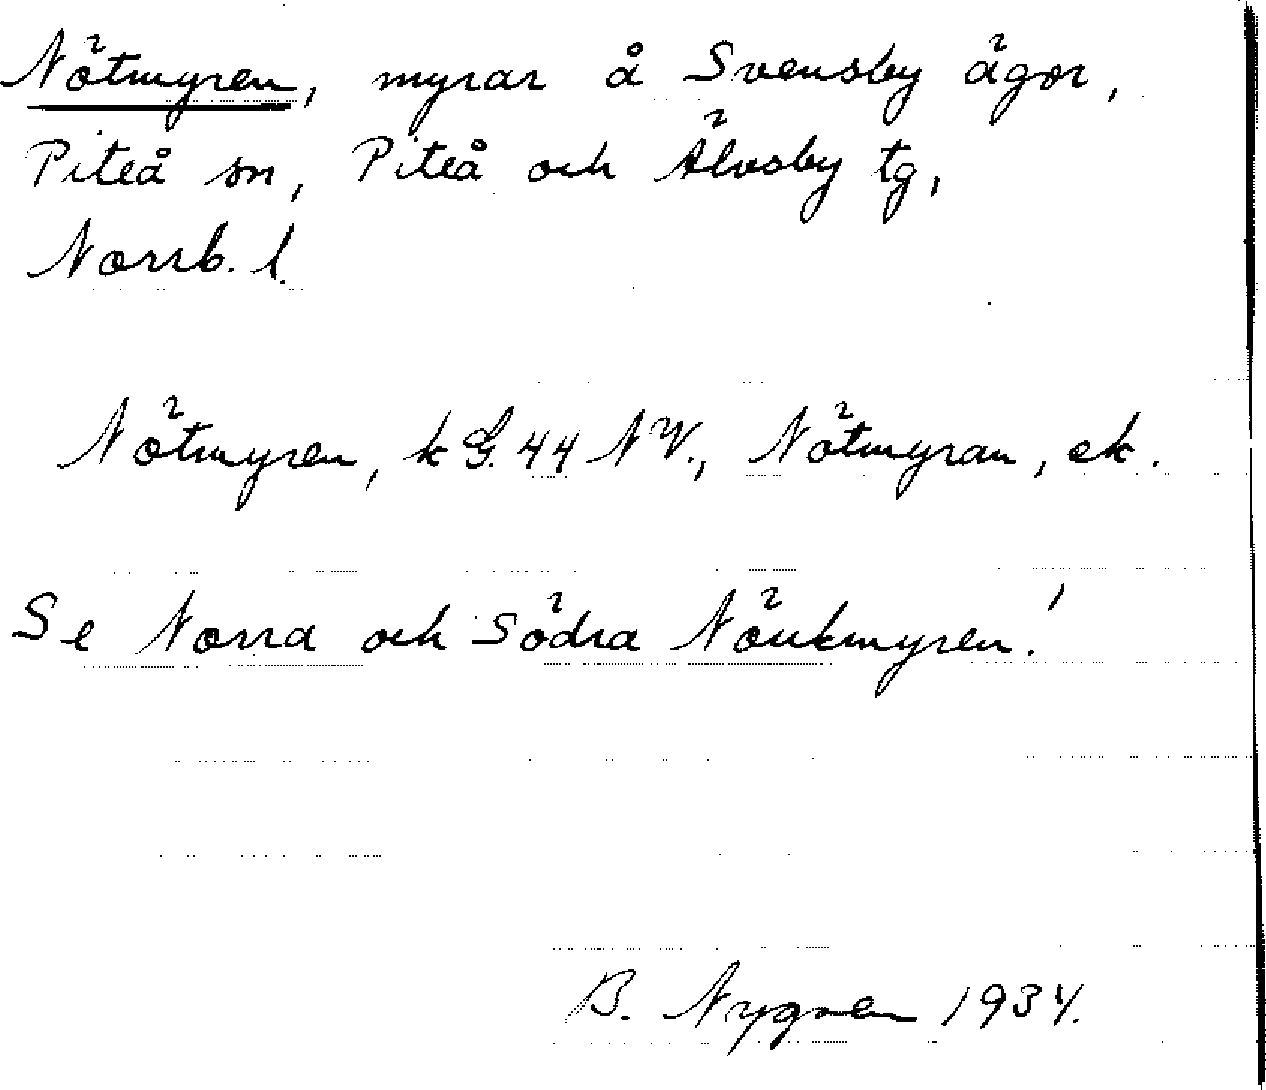 Nötmyren, myrar å Svensby ägor,
Piteå sn, Piteå och Älvsby tg,
Norrb. l.
Nötmyren, k G. 44 NV., Nötmyran, ek.
Se Norra och Södra Nöukmyren!
B. Nygren 1934.